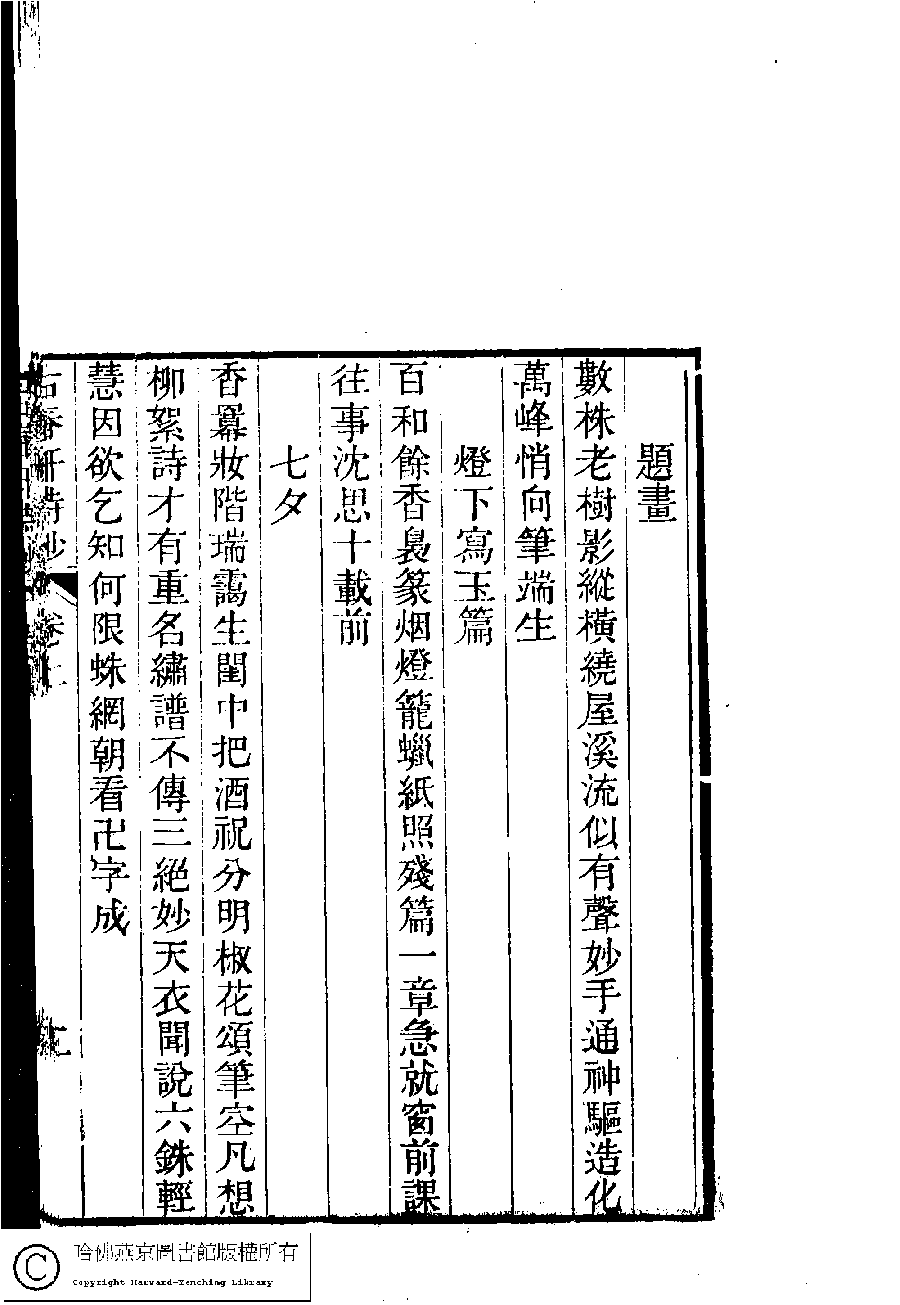 題畫
數株老樹影縱橫繞屋溪流似有聲妙手通神驅造化
萬峰悄向筆端生
燈下寫玉篇
百和餘香裊篆烟燈籠蠟紙照殘篇一章急就窗前課
往事沈思十載前
七夕
香羃妝階瑞靄生閨中把酒祝分明椒花頌筆空凡想
柳絮詩才有重名繡譜不傳三絕妙天衣聞說六銖輕
慧因欲乞知何限蛛網朝看卍字成
詩鈔 卷上
哈佛燕京圖書館版權所有
Copyright Harvard-Yenching Library